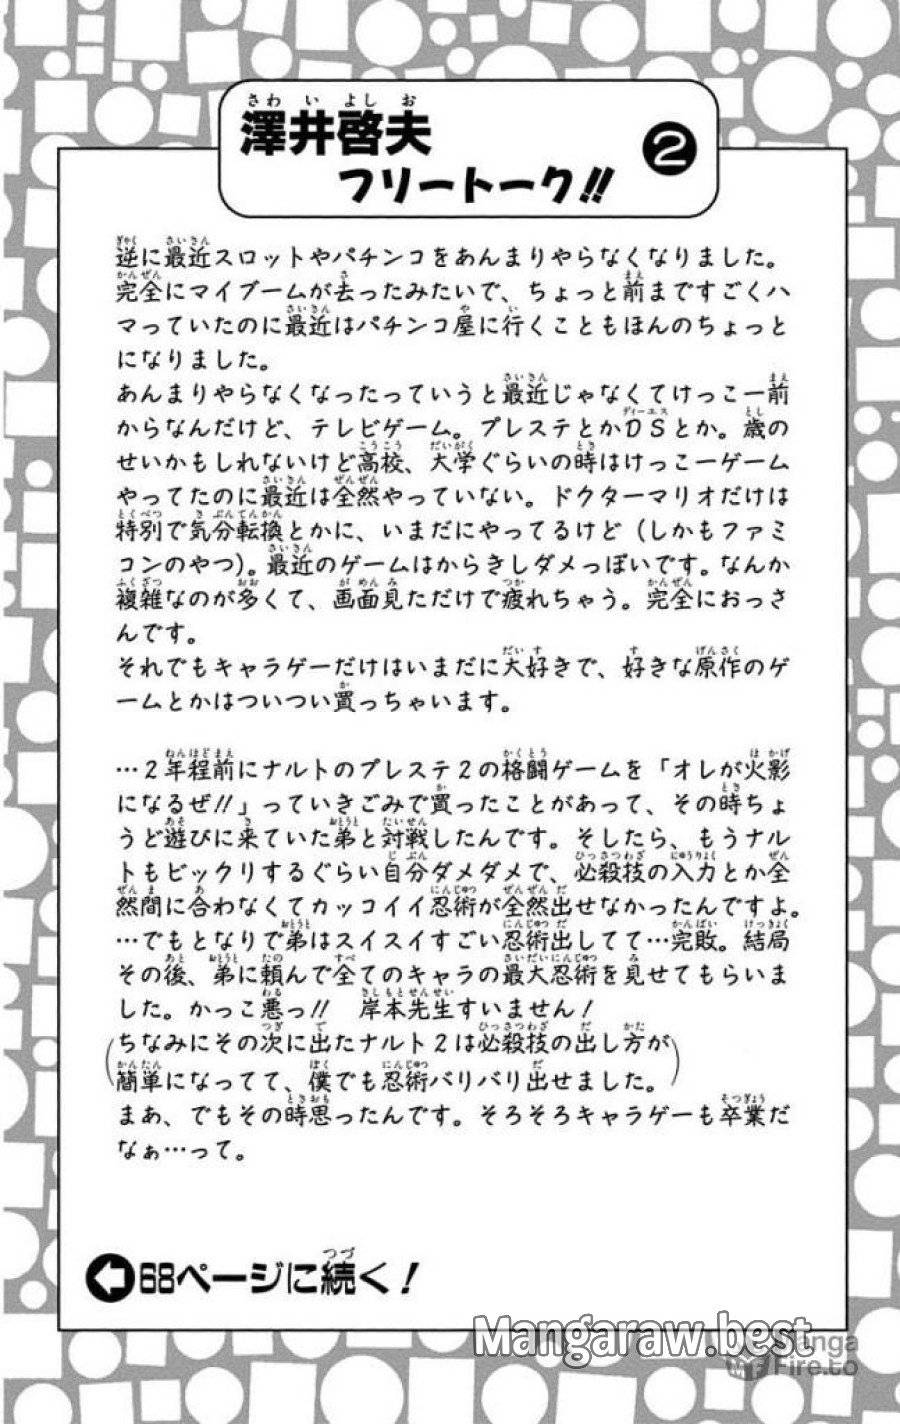 澤井啓夫
フリートーク!!
2
逆に最近スロットやパチンコをあんまりやらなくなりました。
完全にマイブームが去ったみたいで、ちょっと前まですごくハ
マっていたのに最近はパチンコ屋に行くこともほんのちょっと
になりました。
あんまりやらなくなったっていうと最近じゃなくてけっこー前
からなんだけど、テレビゲーム。プレステとかDSとか。歳の
せいかもしれないけど高校、大学ぐらいの時はけっこーゲーム
やってたのに最近は全然やっていない。ドクターマリオだけは
特別で気分転換とかに、いまだにやってるけど(しかもファミ
コンのやつ)。最近のゲームはからきしダメっぽいです。なんか
複雑なのが多くて、画面見ただけで疲れちゃう。完全におっさ
んです。
それでもキャラゲーだけはいまだに大好きで、好きな原作のゲ
ームとかはついつい買っちゃいます。
…2年程前にナルトのプレステ2の格闘ゲームを「オレが火影
になるぜ!!」っていきごみで買ったことがあって、その時ちょ
うど遊びに来ていた弟と対戦したんです。そしたら、もうナル
トもビックリするぐらい自分ダメダメで、必殺技の入力とか全
然間に合わなくてカッコイイ忍術が全然出せなかったんですよ。
…でもとなりで弟はスイスイすごい忍術出してて…完敗。結局
その後、弟に頼んで全てのキャラの最大忍術を見せてもらいま
した。かっこ悪っ!! 岸本先生すいません!
(ちなみにその次に出たナルト2は必殺技の出し方が
簡単になってて、僕でも忍術バリバリ出せました。)
まあ、でもその時思ったんです。そろそろキャラゲーも卒業だ
なぁ…って。
68ページに続く!
Mangaraw.best
Manga
Fire.to